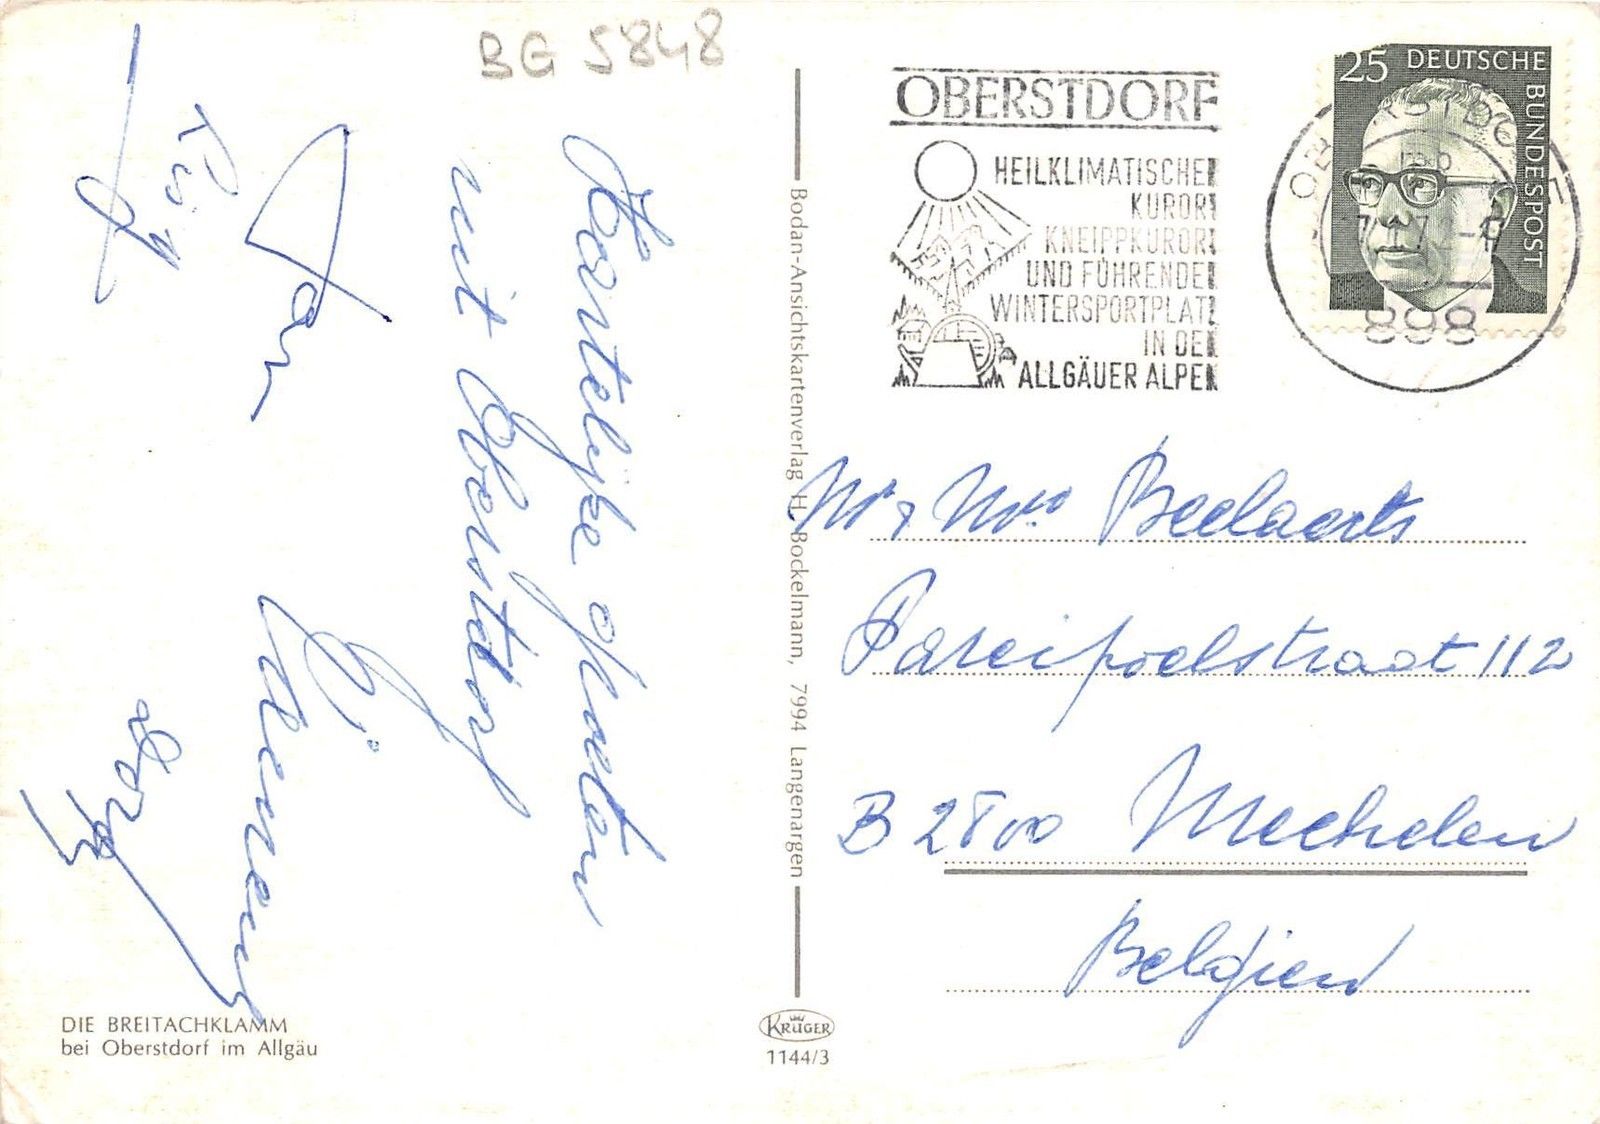 BG 5848
Hartelijke groeten
uit Oberstdorf
OBERSTDORF
HEILKLIMATISCHER
KURORT
KNEIPPKURORT
UND FÜHRENDER
WINTERSPORTPLATZ
IN DEN
ALLGÄUER ALPEN
25 DEUTSCHE
BUNDESPOST
OBERSTDORF
898
Bodan-Ansichtskartenverlag H. Bockelmann, 7994 Langenargen
Mr & Mrs Beelaerts
Pareipoelstraat 112
B 2800 Mechelen
Belgien
DIE BREITACHKLAMM
bei Oberstdorf im Allgäu
KRÜGER
1144/3